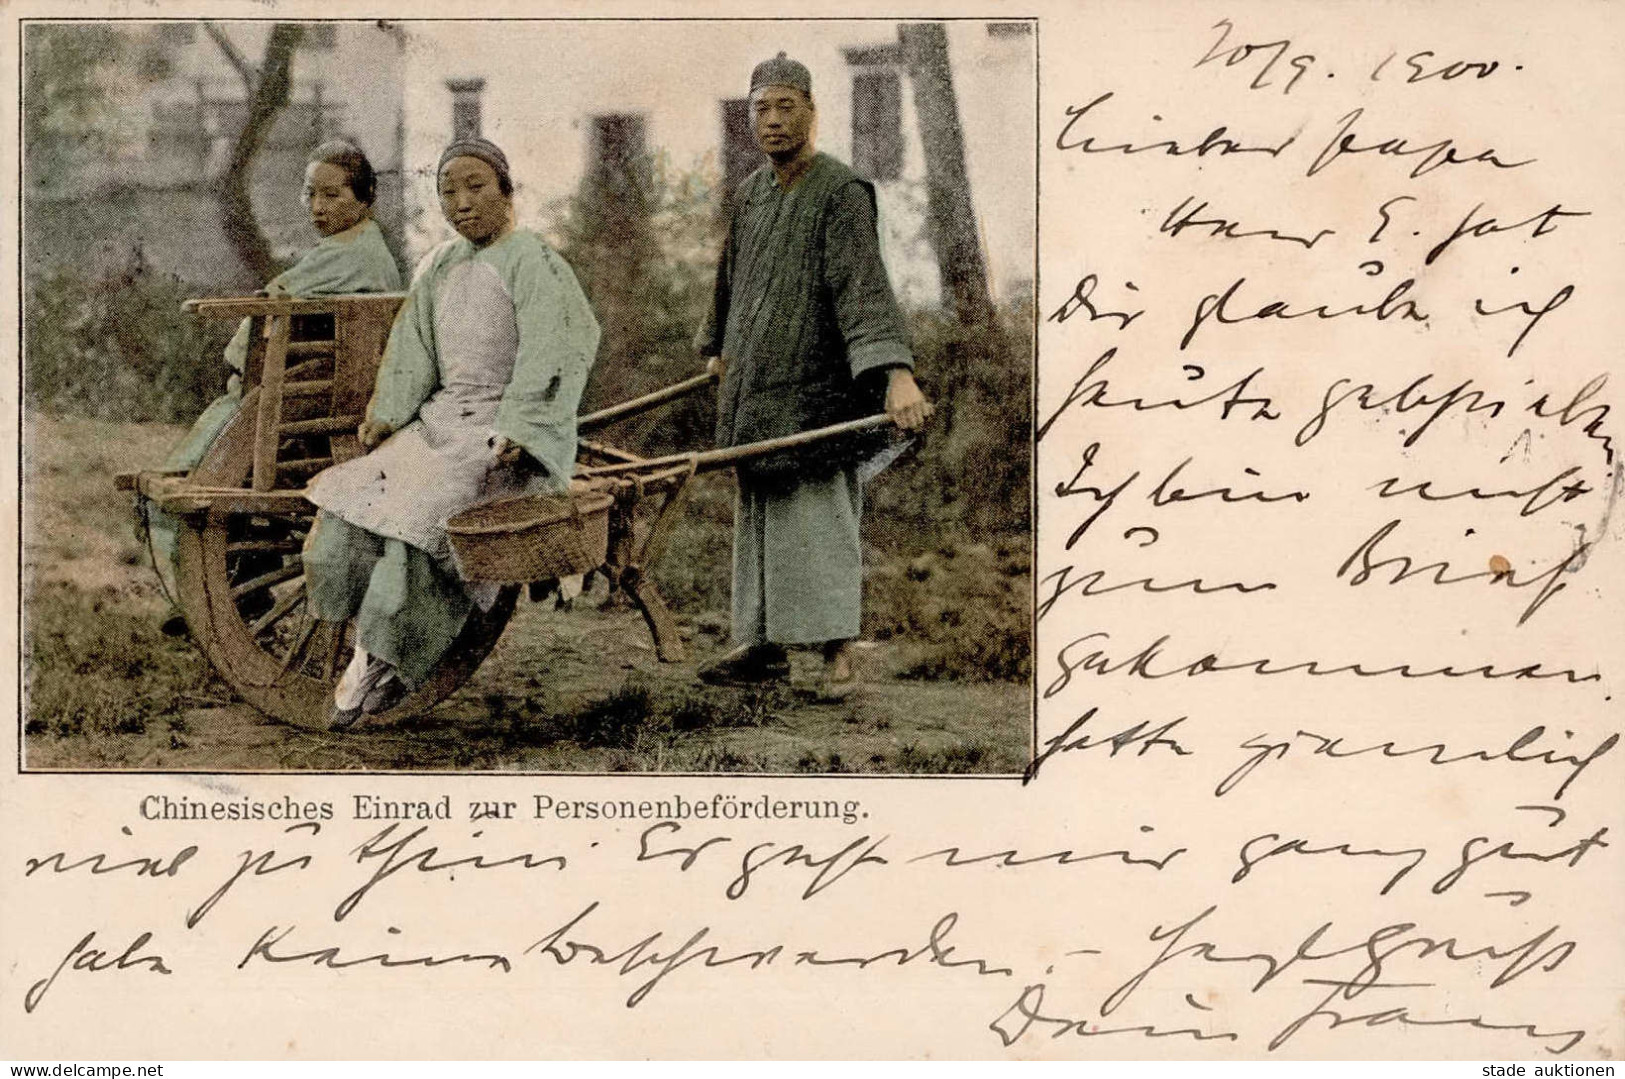 20/9. 1900.
Lieber Papa
Herr E. hat
Dir glaube ich
heute geschrieben
Ich bin nicht
zum Brief
gekommen.
hatte ziemlich
Chinesisches Einrad zur Personenbeförderung.
viel zu thun. Es geht mir ganz gut
habe keine Beschwerden. – Herzl Gruß
Dein Franz
stade auktionen
www.delcampe.net